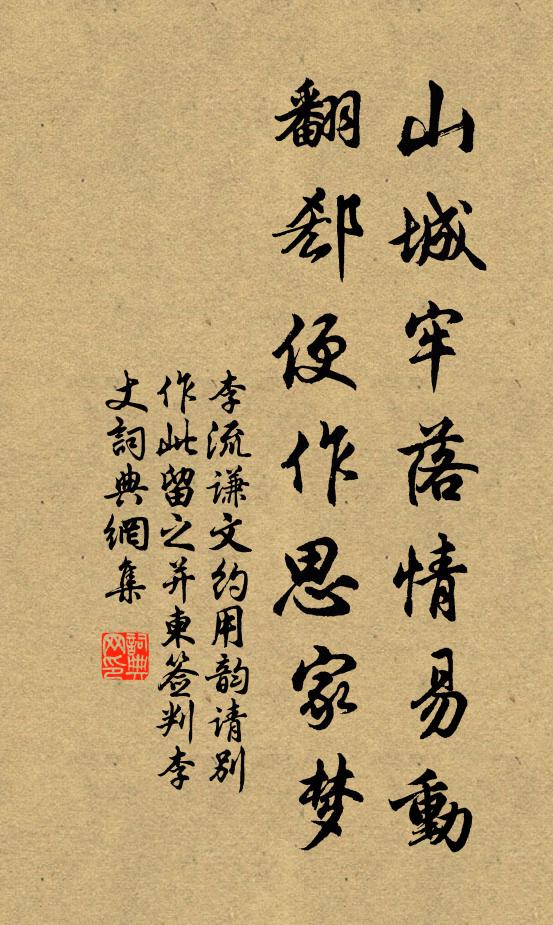 山城牢落情易動
翻却便作思家梦
李流谦文约用韵请别
作此留之并東签判李
丈詞典網集
詞典
网印